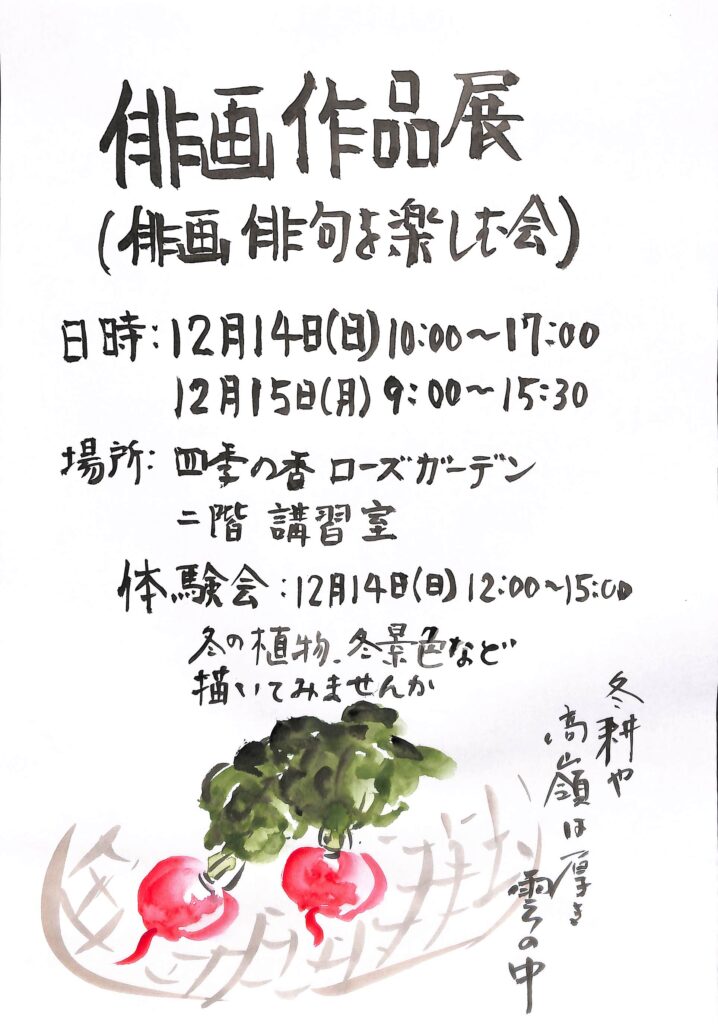 俳画作品展
(俳画 俳句を楽しむ会)
日時:12月14日(日)10:00〜17:00
12月15日(月)9:00〜15:30
場所:四季の香 ローズガーデン
二階 講習室
体験会:12月14日(日)12:00〜15:00
冬の植物、冬景色など
描いてみませんか
冬耕や
高嶺は厚き
雲の中